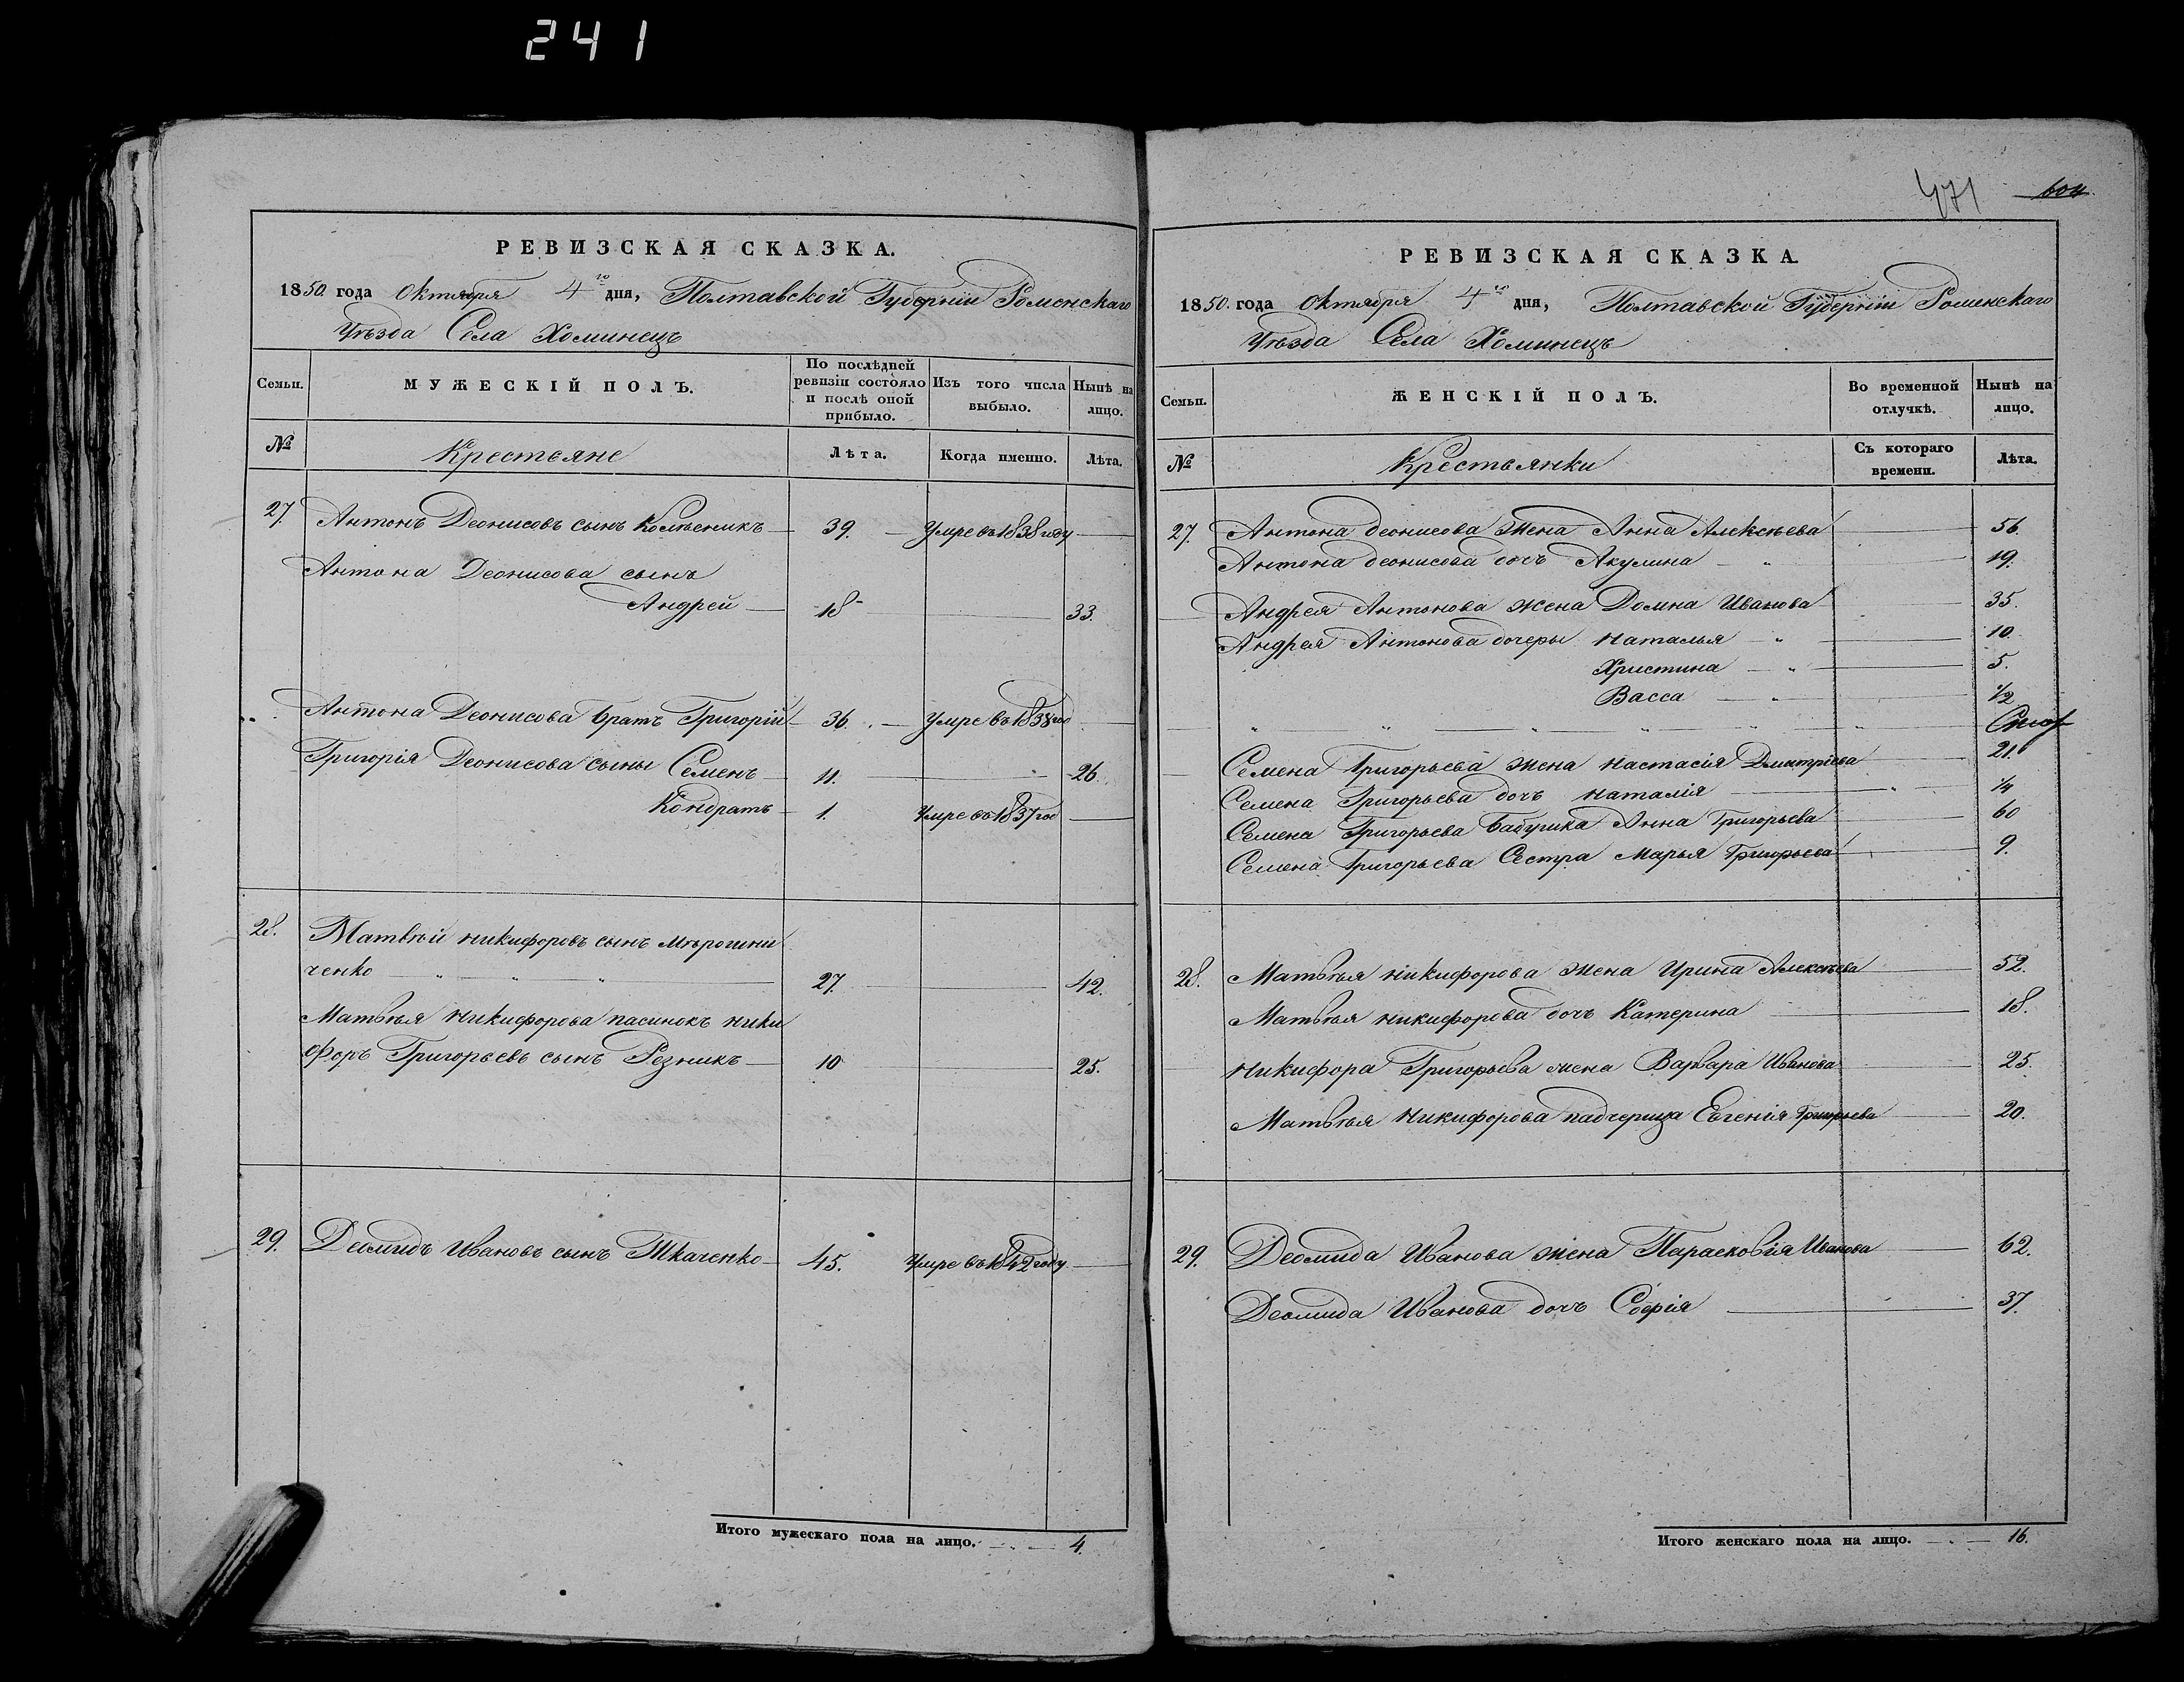 241
РЕВИЗСКАЯ СКАЗКА.
1850 года Октября 4го дня, Полтавской Губерніи Роменскаго
Уѣзда Села Хоминецъ
Семьи.
МУЖЕСКІЙ ПОЛЪ.
По послѣдней ревизіи состояло и послѣ оной прибыло.
Изъ того числа выбыло.
Нынѣ на лицо.
№
Крестьяне
Лѣта.
Когда именно.
Лѣта.
27. Антонъ Деонисовъ сынъ 39. Умре въ 1838 году
Антона Деонисова сынъ
Андрей 18 33.
Антона Деонисова братъ Григорій 36. Умре въ 1838 год
Григорія Деонисова сыны Семенъ 11. 26.
Кондратъ 1. Умре въ 1837 год
28. Матвѣй Никифоровъ сынъ
ченко 27. 42.
Матвѣя Никифорова пасинокъ Ники
форъ Григорьевъ сынъ Резникъ 10 25.
29. Деомидъ Ивановъ сынъ Ткаченко 45. Умре въ 1842 году
Итого мужескаго пола на лицо. 4.
471 604
РЕВИЗСКАЯ СКАЗКА.
1850. года Октября 4го дня, Полтавской Губерніи Роменскаго
Уѣзда Села Хоминецъ
Семьи.
ЖЕНСКІЙ ПОЛЪ.
Во временной отлучкѣ.
Нынѣ на лицо.
№
Крестьянки
Съ котораго времени.
Лѣта.
27. Антона Деонисова жена Анна Алексѣева 56.
Антона Деонисова дочь Акулина " 19.
Андрея Антонова жена Домна Иванова 35.
Андрея Антонова дочеры Наталья " 10.
Христина " 5.
Васса " 1/2
Семена Григорьева жена Настасія Дмитріева 21.
Семена Григорьева дочь Наталія " 1/4
Семена Григорьева бабушка Анна Григорьева 60
Семена Григорьева Сестра Марья Григорьева 9.
28. Матвѣя Никифорова жена Ирина Алексѣева 52.
Матвѣя Никифорова дочь Катерина 18.
Никифора Григорьева жена Варвара Иванова 25.
Матвѣя Никифорова падчерица Евгенія Григорьева 20.
29. Деомида Иванова жена Парасковія Иванова 62.
Деомида Иванова дочь Софія 37.
Итого женскаго пола на лицо. 16.